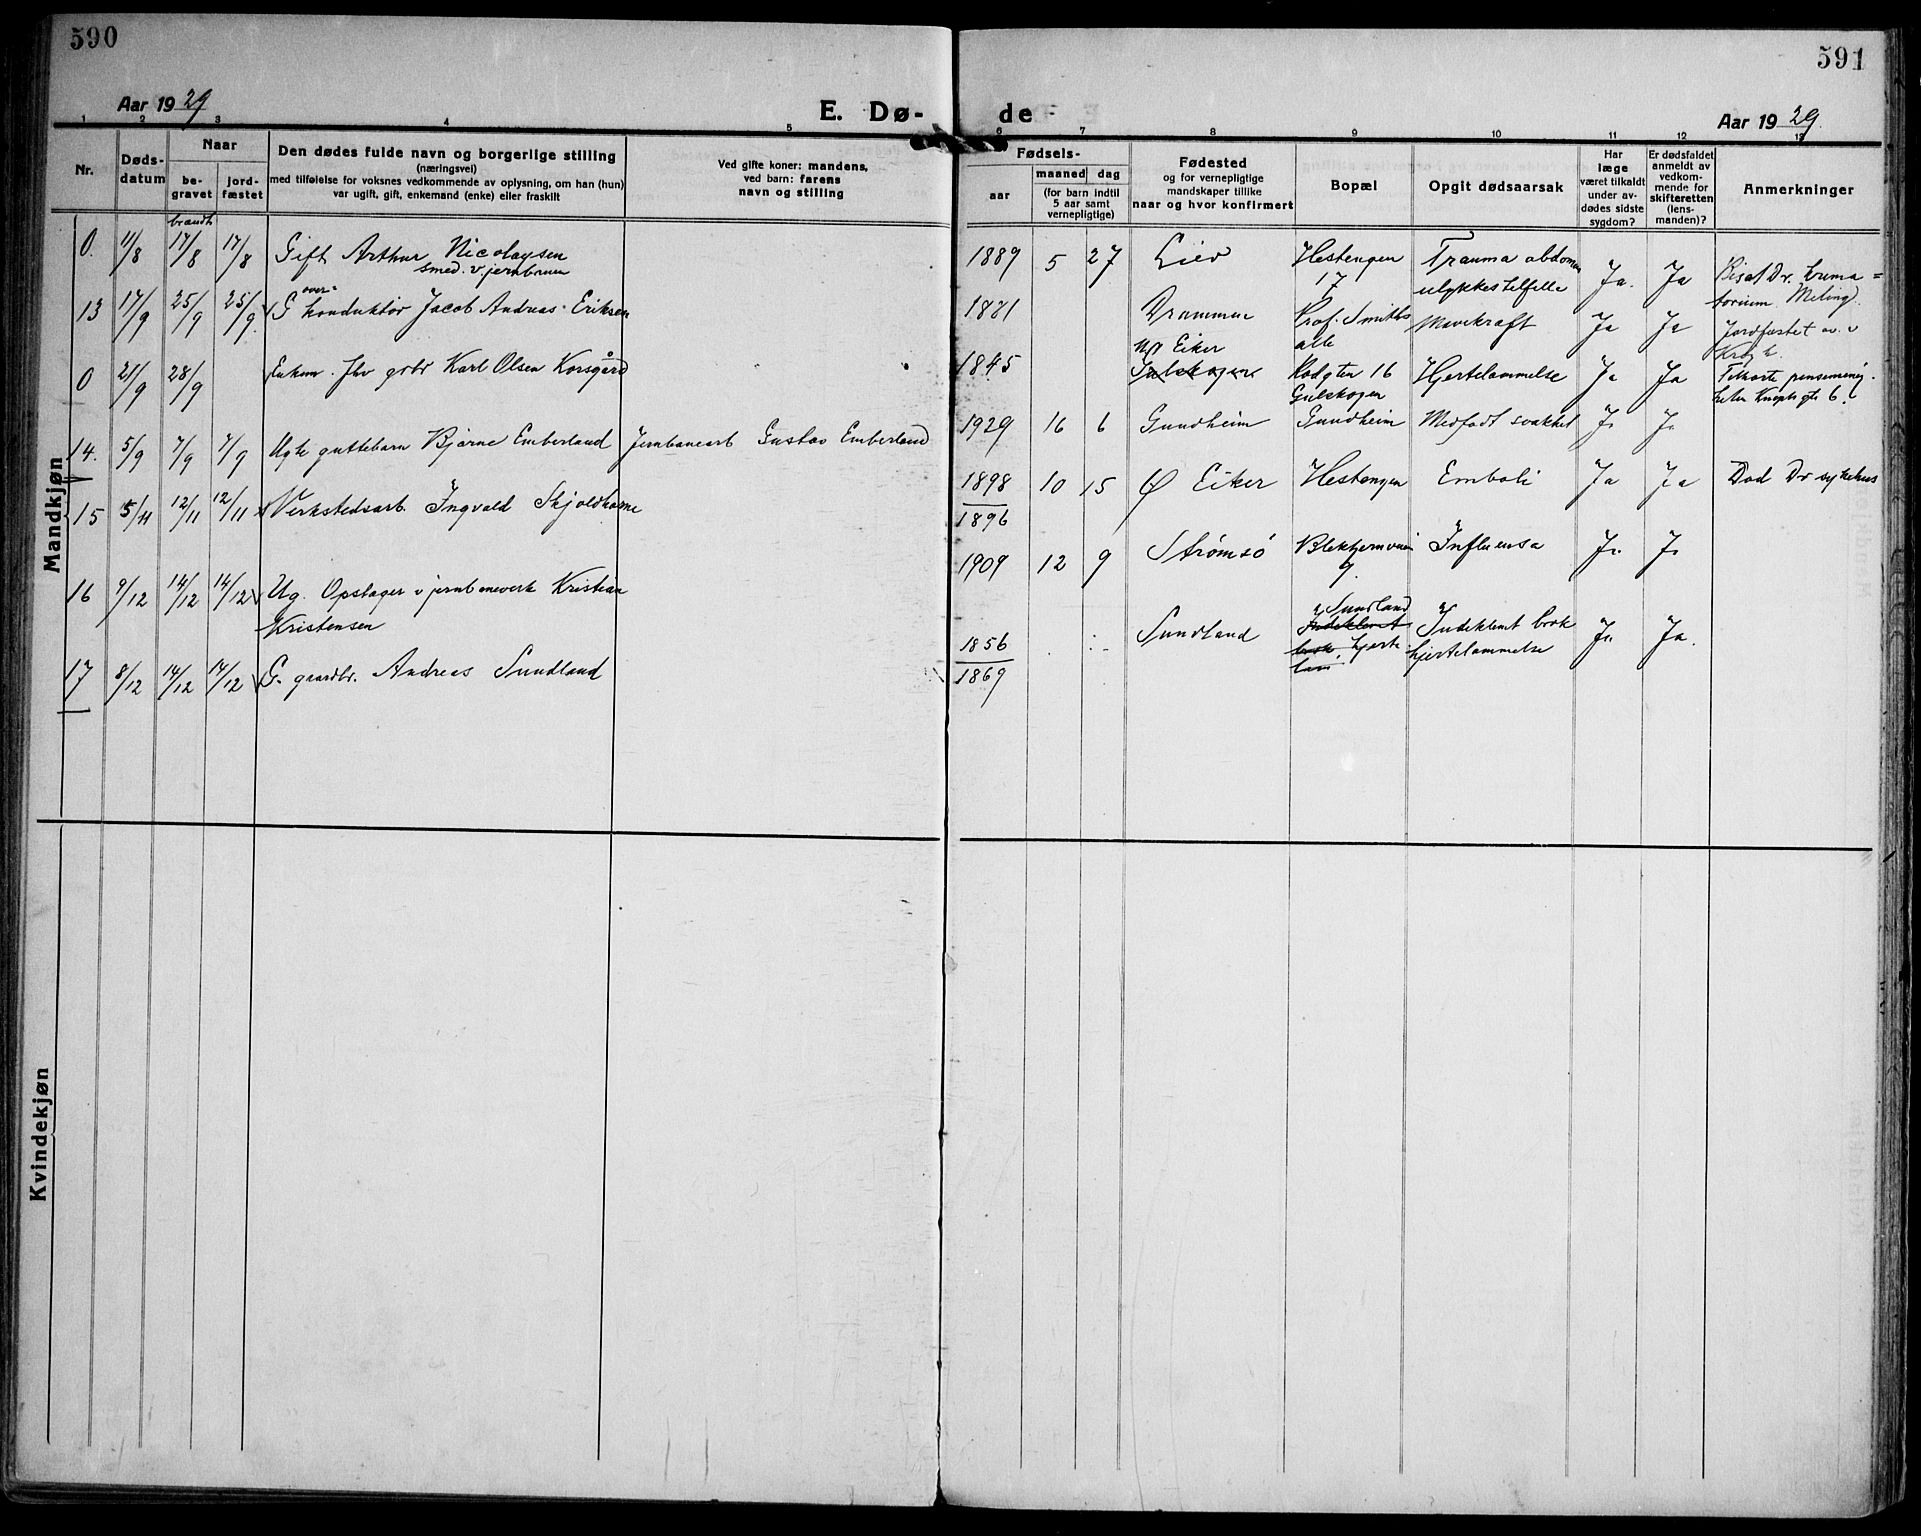 590
Aar 1929
E. Dø-
1 2 3 4 5
Nr.
Døds-
datum
Naar
be-
gravet
jord-
fæstet
Den dødes fulde navn og borgerlige stilling
(næringsvei)
med tilføielse for voksnes vedkommende av oplysning, om han (hun)
var ugift, gift, enkemand (enke) eller fraskilt
Ved gifte koner: mandens,
ved barn: farens
navn og stilling
Mandkjøn
brandt
0. 11/8 17/8 17/8 Gift Arthur Nicolaysen
smed. v jernbanen
over-
13 17/9 25/9 25/9 G konduktør Jacob Andreas Eriksen
0 21/9 28/9 Enkem. fhv grbr Karl Olsen Korsgård
14. 5/9 7/9 7/9 Ugte guttebarn Bjarne Emberland Jernbanearb Gustav Emberland
15 5/11 12/11 12/11 Verkstedsarb. Ingvald Skjoldhorne
16 9/12 14/12 14/12 Ug. Opstager v jernbaneverk Kristian
Kristensen
17 8/12 14/12 14/12 G. gaardbr. Andreas Sundland
Kvindekjøn
591
de
Aar 1929
6 7 8 9 10 11 12 13
Fødsels-
aar
maaned dag
(for barn indtil
5 aar samt
vernepligtige)
Fødested
og for vernepligtige
mandskaper tillike
naar og hvor konfirmert
Bopæl
Opgit dødsaarsak
Har
læge
været tilkaldt
under av-
dødes sidste
sygdom?
Er dødsfaldet
anmeldt av
vedkom-
mende for
skifteretten
(lens-
manden)?
Anmerkninger
1889 5 27 Lier Hestengen Trauma abdomen Ja. Ja Bisat Dr. krema=
17 ulykkestilfelle torium Meling.
1881 Drammen Prof. Smiths Mavekræft Ja Ja Jordfæstet av
alle Krogh.
1845 N. Eiker
Gulskogen Rødgten 16 Hjertelammelse Ja Ja
Gulskogen
1929 16 6 Gundheim Gundheim Medfødt svakhet Ja Ja
1898 10 15 Ø Eiker Hestengen Emboli Ja Ja Død Dr sykehus
1896
1909 12 9 Strømsø 9. Influensa Ja Ja
1856 Sundland Sundland Indeklemt brok Ja Ja.
Indeklemt
brok. hjerte hjertelammelse
lam
1869